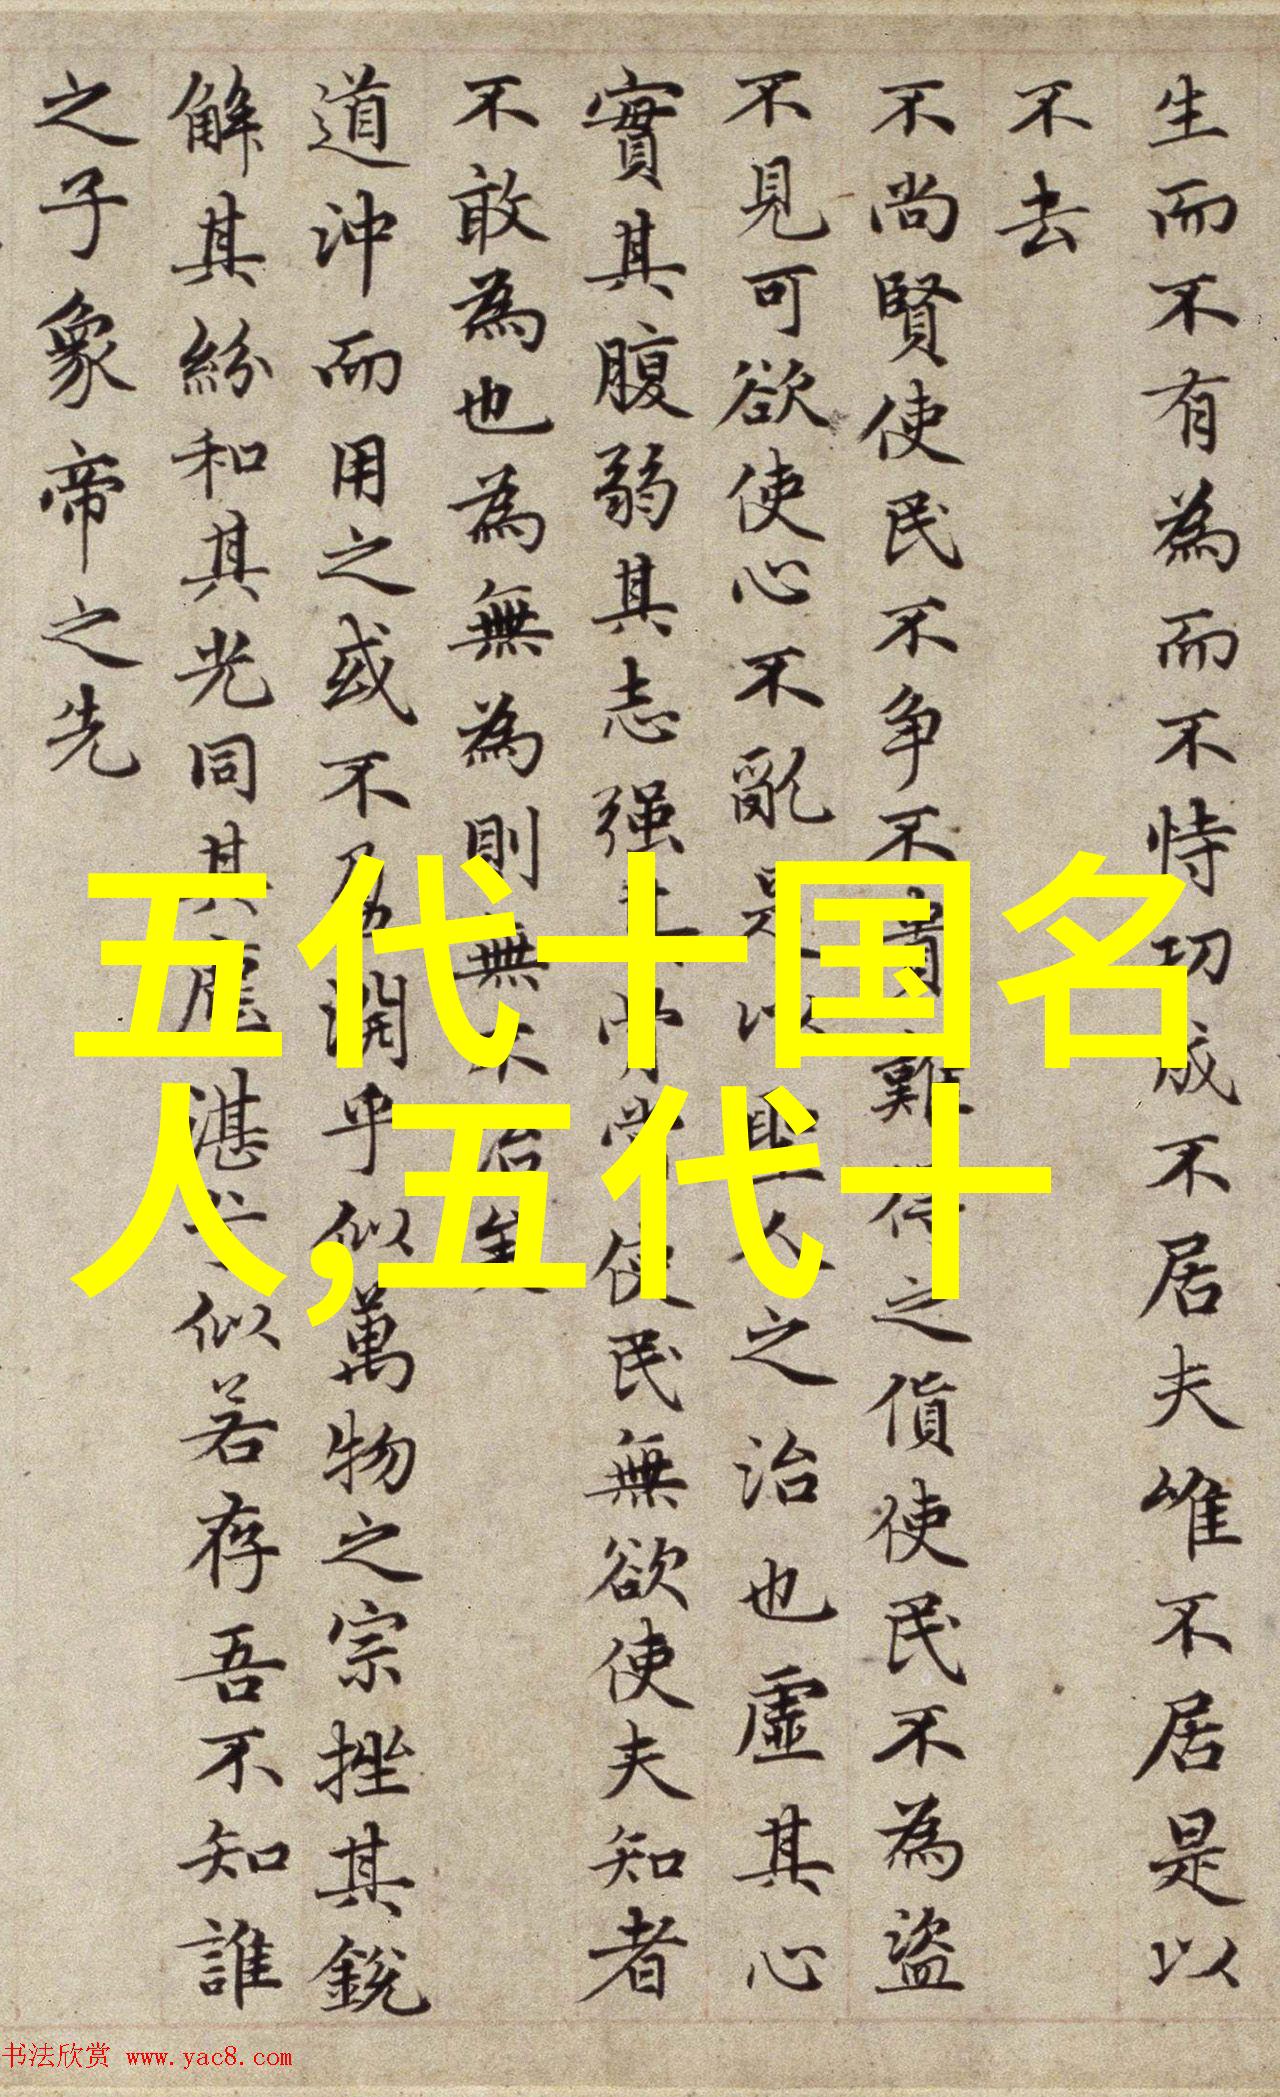 生而不有為而不恃功成不居夫唯不居是以
不去
不尚賢使民不争不貴難得之貨使民不為盜
不見可欲使心不亂是以聖人之治也虛其心
實其腹弱其志强其骨常使民無欲使夫知者
不敢為也為無為則無不治矣
道沖而用之或不盈淵乎似萬物之宗挫其銳
解其紛和其光同其塵湛兮似若存吾不知誰
之子象帝之先
五代十国名
人,五代十
书法欣赏 www.yac8.com